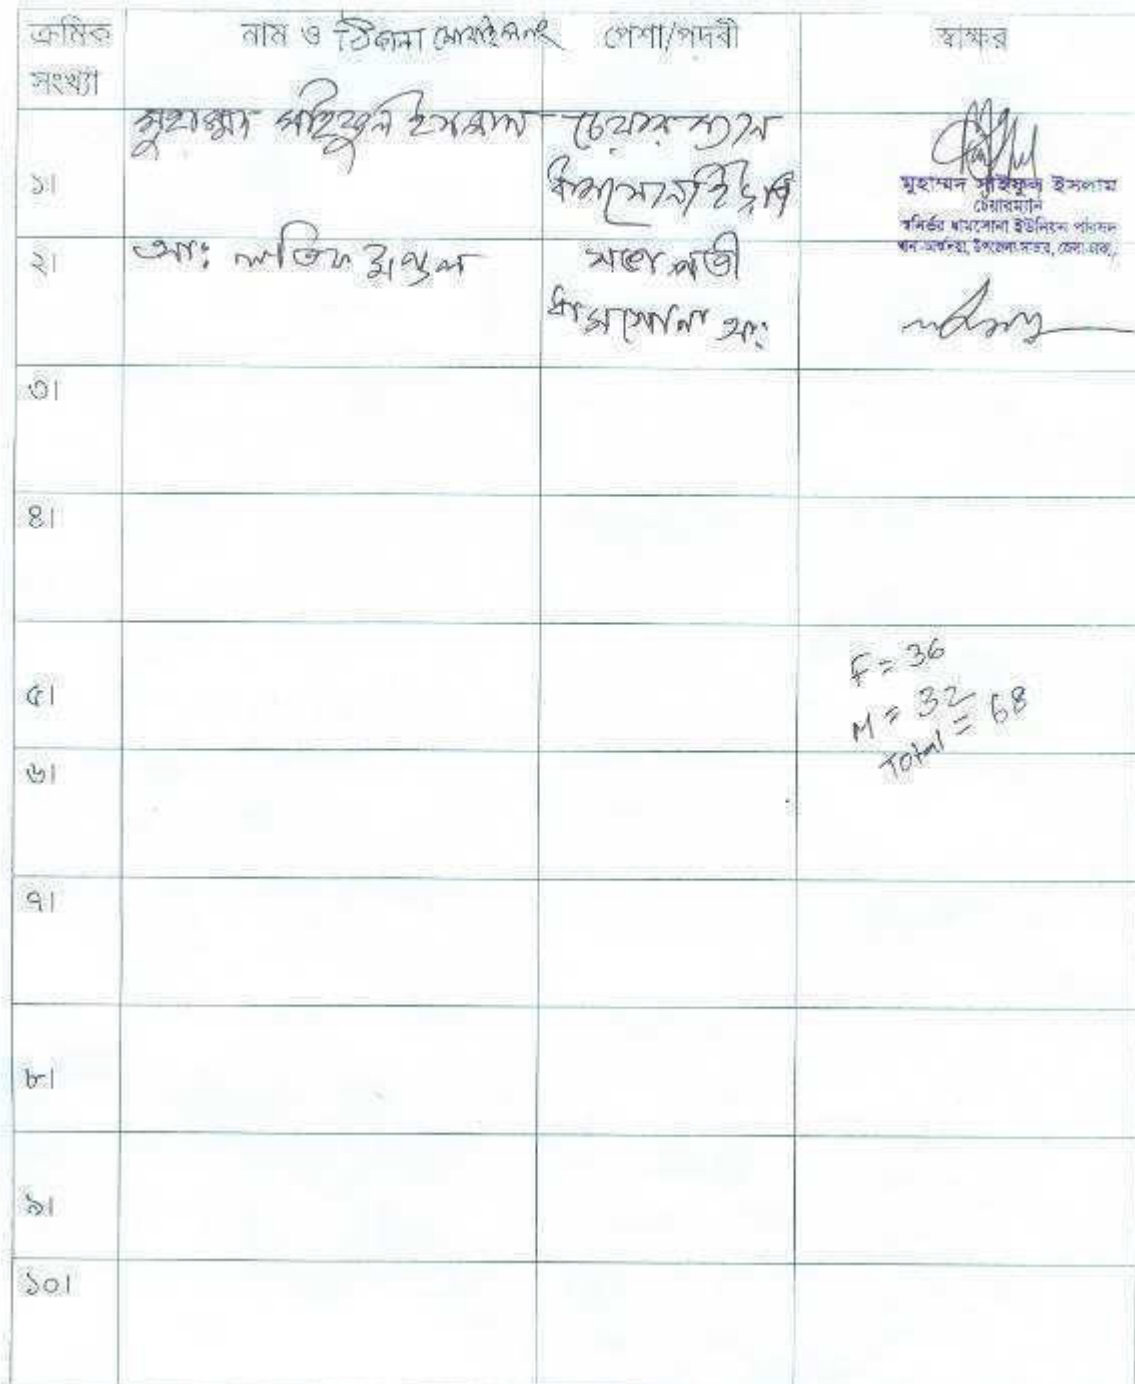 ক্রমিক সংখ্যা নাম ও ঠিকানা মোবাইল নং পেশা/পদবী স্বাক্ষর
১। মুহাম্মদ সাইফুল ইসলাম চেয়ারম্যান
ধামসোনা ইউপি
মুহাম্মদ সাইফুল ইসলাম
চেয়ারম্যান
স্বনির্ভর ধামসোনা ইউনিয়ন পরিষদ
থানা-আশুলিয়া, উপজেলা-সাভার, জেলা-ঢাকা,
২। আঃ লতিফ মন্ডল সভাপতী
ধামসোনা আঃ
৩।
৪।
৫।
F = 36
M = 32
Total = 68
৬।
৭।
৮।
৯।
১০।